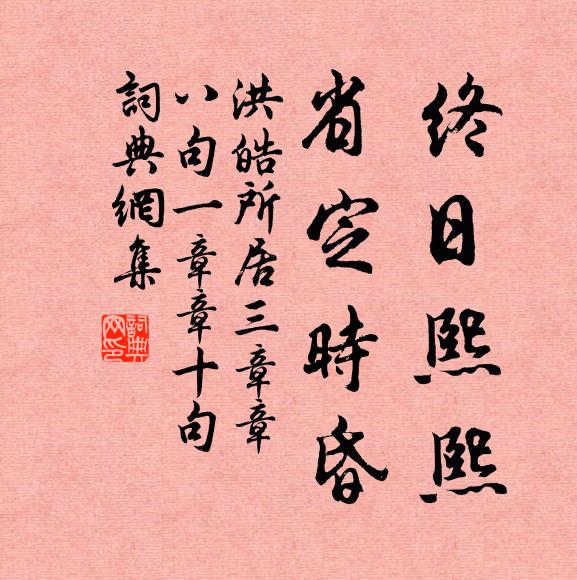 終日熙熙
省定時昏
洪皓所居三章章
八句一章章十句
詞典網集
詞典网印